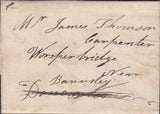 Mr James Thomson
Carpenter
Worsper bridge
Near
Barnsley